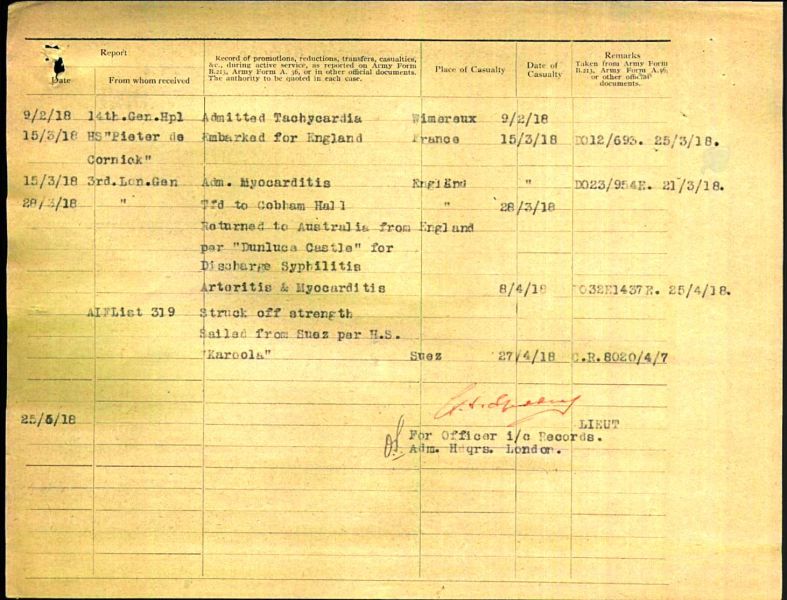 Report
Record of promotions, reductions, transfers, casualties,
&c., during active service, as reported on Army Form
B.213, Army Form A. 36, or in other official documents.
The authority to be quoted in each case.
Place of Casualty
Date of
Casualty
Remarks
Taken from Army Form
B.213, Army Form A.36,
or other official
documents.
Date
From whom received
9/2/18 14th.Gen.Hpl Admitted Tachycardia Wimereux 9/2/18
15/3/18 HS"Pieter de Embarked for England France 15/3/18 DO12/693. 25/3/18.
Cornick"
15/3/18 3rd.Lon.Gen Adm. Myocarditis England " DO23/954E. 21/3/18.
28/3/18 " Tfd to Cobham Hall " 28/3/18
Returned to Australia from England
per "Dunluce Castle" for
Discharge Syphilitis
Arteritis & Myocarditis 8/4/18 DO32E1437E. 25/4/18.
AIFList 319 Struck off strength
Sailed from Suez per H.S.
"Karoola" Suez 27/4/18 C.R.8020/4/7
25/5/18
LIEUT
For Officer i/c Records.
Adm. Hqrs. London.